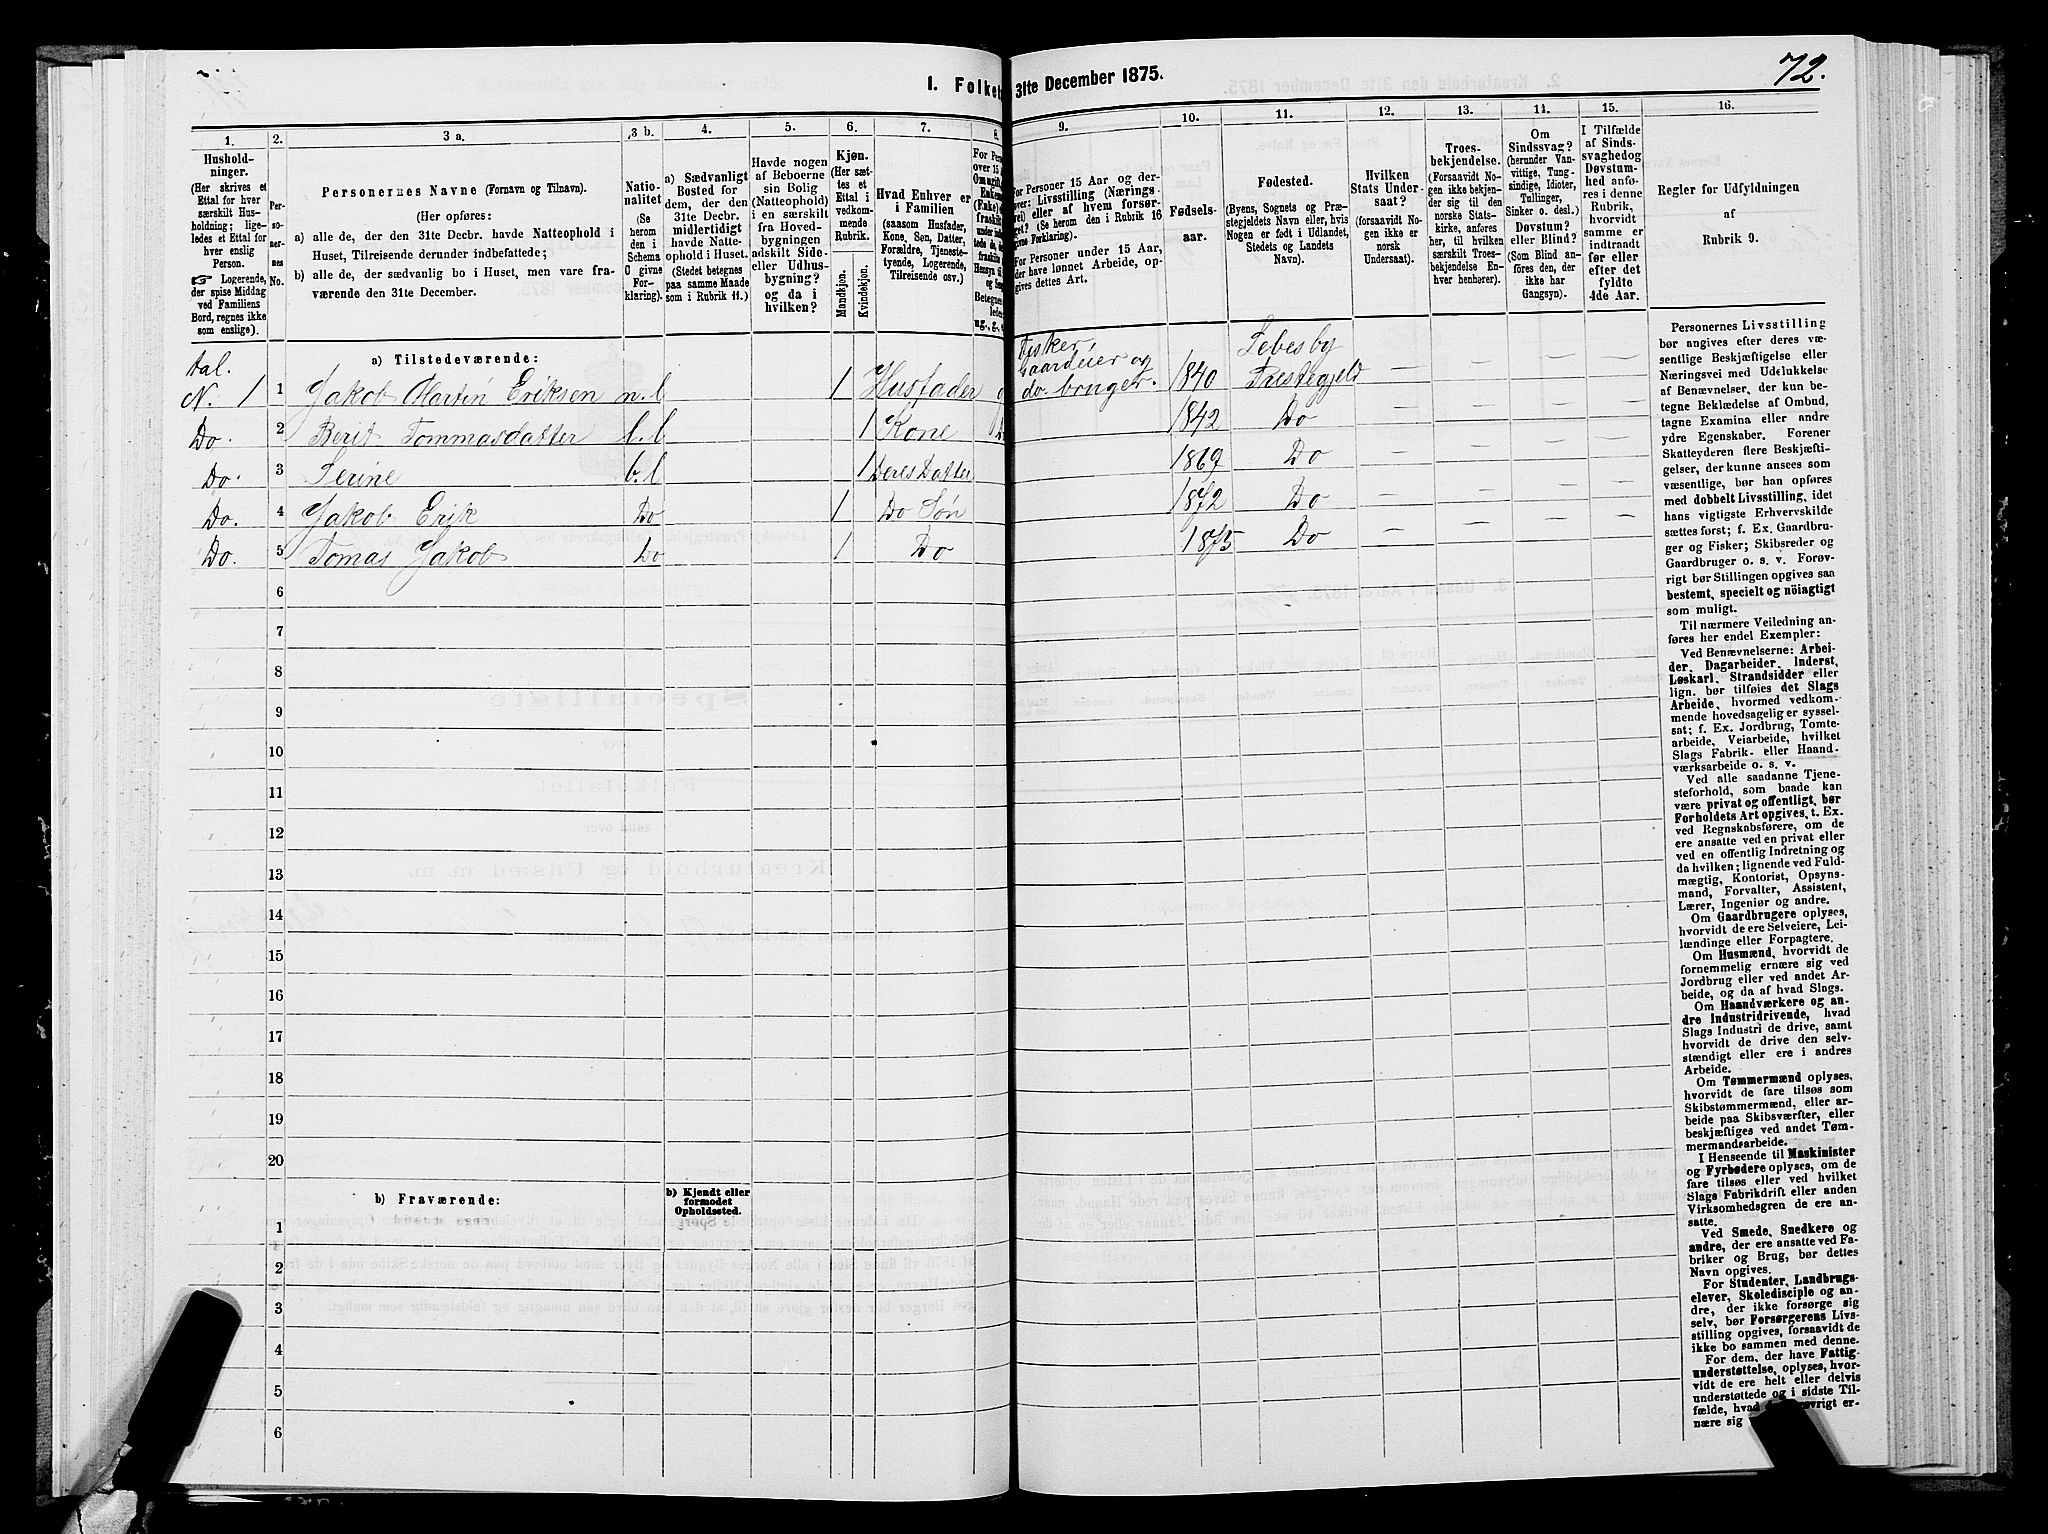 1. Folket
31te December 1875.
72.
1.
2.
3 a.
3 b.
4.
5.
6.
7.
8.
9.
10.
11.
12.
13.
14.
15.
16.
Hushold-
ninger.
(Her skrives et
Ettal for hver
særskilt Hus-
holdning; lige-
ledes et Ettal for
hver enslig
Person.
☞ Logerende,
der spise Middag
ved Familiens
Bord, regnes ikke
som enslige).
Per-
so-
ner-
nes
No.
Personernes Navne (Fornavn og Tilnavn).
(Her opføres:
a) alle de, der den 31te Decbr. havde Natteophold i
Huset, Tilreisende derunder indbefattede;
b) alle de, der sædvanlig bo i Huset, men vare fra-
værende den 31te December.
Natio-
nalitet
(Se
herom
den i
Schema
C givne
For-
klaring).
a) Sædvanligt
Bosted for
dem, der den
31te Decbr.
midlertidigt
havde Natte-
ophold i Huset.
(Stedet betegnes
paa samme Maade
som i Rubrik 11.)
Havde nogen
af Beboerne
sin Bolig
(Natteophold)
i en særskilt
fra Hoved-
bygningen
adskilt Side-
eller Udhus-
bygning?
og da i
hvilken?
Kjøn.
(Her sæt-
tes et
Ettal i
vedkom-
mende
Rubrik.
Mandkjøn.
Kvindekjøn.
Hvad Enhver er
i Familien
(saasom Husfader,
Kone, Søn, Datter,
Forældre, Tjeneste-
tyende, Logerende,
Tilreisende osv.)
For Personer 15 Aar og der-
over: Livsstilling (Nærings-
vei) eller af hvem forsør-
get? (Se herom den i Rubrik 16
givne Forklaring).
For Personer under 15 Aar,
der have lønnet Arbeide, op-
gives dettes Art.
Fødsels-
aar.
Fødested.
(Byens, Sognets og Præ-
stegjeldets Navn eller, hvis
Nogen er født i Udlandet,
Stedets og Landets
Navn).
Hvilken
Stats Under-
saat?
(forsaavidt No-
gen ikke er
norsk
Undersaat).
Troes-
bekjendelse.
(Forsaavidt No-
gen ikke bekjen-
der sig til den
norske Stats-
kirke, anføres
her, til hvilken
særskilt Troes-
bekjendelse En-
hver henhører).
Om
Sindssvag?
(herunder Van-
vittige, Tung-
sindige, Idioter,
Tullinger,
Sinker o. desl.)
Døvstum?
eller Blind?
(Som Blind an-
føres den, der
ikke har
Gangsyn).
I Tilfælde
af Sinds-
svaghed og
Døvstum-
hed anfø-
res i denne
Rubrik,
hvorvidt
samme er
indtraadt
før eller
efter det
fyldte
4de Aar.
Regler for Udfyldningen
af
Rubrik 9.
a) Tilstedeværende:
N. 1 1 Jakob Martin Eriksen n.l 1 Husfader Fisker, Gaardeier og do. bruger. 1840 Lebesby Prestegjeld
Do. 2 Berit Tommasdatter l.l 1 Kone 1842 Do — — — —
Do. 3 b.l 1 Deres Datter 1869 Do — — — —
Do. 4 Jakob Erik Do 1 Do Søn 1872 Do — — — —
Do. 5 Tomas Jakob Do 1 Do 1875 Do — — — —
6
7
8
9
10
11
12
13
14
15
16
17
18
19
20
b) Fraværende:
b) Kjendt eller
formodet
Opholdssted.
1
2
3
4
5
6
Personernes Livsstilling
bør angives efter deres væ-
sentlige Beskjæftigelse eller
Næringsvei med Udelukkelse
af Benævnelser, der kun be-
tegne Beklædelse af Ombud,
tagne Examina eller andre
ydre Egenskaber. Forener
Skatteyderen flere Beskjæfti-
gelser, der kunne ansees som
væsentlige, bør han opføres
med dobbelt Livsstilling, idet
hans vigtigste Erhvervskilde
sættes først; f. Ex. Gaardbru-
ger og Fisker; Skibsreder og
Gaardbruger o. s. v. Forøv-
rigt bør Stillingen opgives saa
bestemt, specielt og nöiagtigt
som muligt.
Til nærmere Veiledning an-
føres her endel Exempler:
Ved Benævnelserne: Arbei-
der, Dagarbeider, Inderst,
Løskarl, Strandsidder eller
lign. bør tilføies det Slags
Arbeide, hvormed vedkom-
mende hovedsagelig er syssel-
sat; f. Ex. Jordbrug, Tomte-
arbeide, Veiarbeide, hvilket
Slags Fabrik- eller Haand-
værksarbeide o. s. v.
Ved alle saadanne Tjene-
steforhold, som baade kan
være privat og offentligt, bør
Forholdets Art opgives, t. Ex.
ved Regnskabsførere, om de
ere ansatte ved en privat eller
ved en offentlig Indretning og
da hvilken; lignende ved Fuld-
mægtig, Kontorist, Opsyns-
mand, Forvalter, Assistent,
Lærer, Ingeniør og andre.
Om Gaardbrugere oplyses,
hvorvidt de ere Selveiere, Lei-
lændinge eller Forpagtere.
Om Husmænd, hvorvidt de
fornemmelig ernære sig ved
Jordbrug eller ved andet Ar-
beide, og da af hvad Slags.
Om Haandværkere og an-
dre Industridrivende, hvad
Slags Industri de drive, samt
hvorvidt de drive den selv-
stændigt eller ere i andres
Arbeide.
Om Tømmermænd oplyses,
hvorvidt de fare tilsøs som
Skibstømmermænd, eller ar-
beide paa Skibsværfter, eller
beskjæftiges ved andet Tøm-
mermandsarbeide.
I Henseende til Maskinister
og Fyrbødere oplyses, om de
fare tilsøs eller ved hvilket
Slags Fabrikdrift eller anden
Virksomhedsgren de ere an-
satte.
Ved Smede, Snedkere og
andre, der ere ansatte ved Fa-
briker og Brug, bør dettes
Navn opgives.
For Studenter, Landbrugs-
elever, Skoledisciple og an-
dre, der ikke forsørge sig
selv, bør Forsørgerens Livs-
stilling opgives, forsaavidt de
ikke bo sammen med denne.
For dem, der have Fattig-
understøttelse, oplyses, hvor-
vidt de ere helt eller delvis
understøttede og i sidste Til-
fælde, hvad